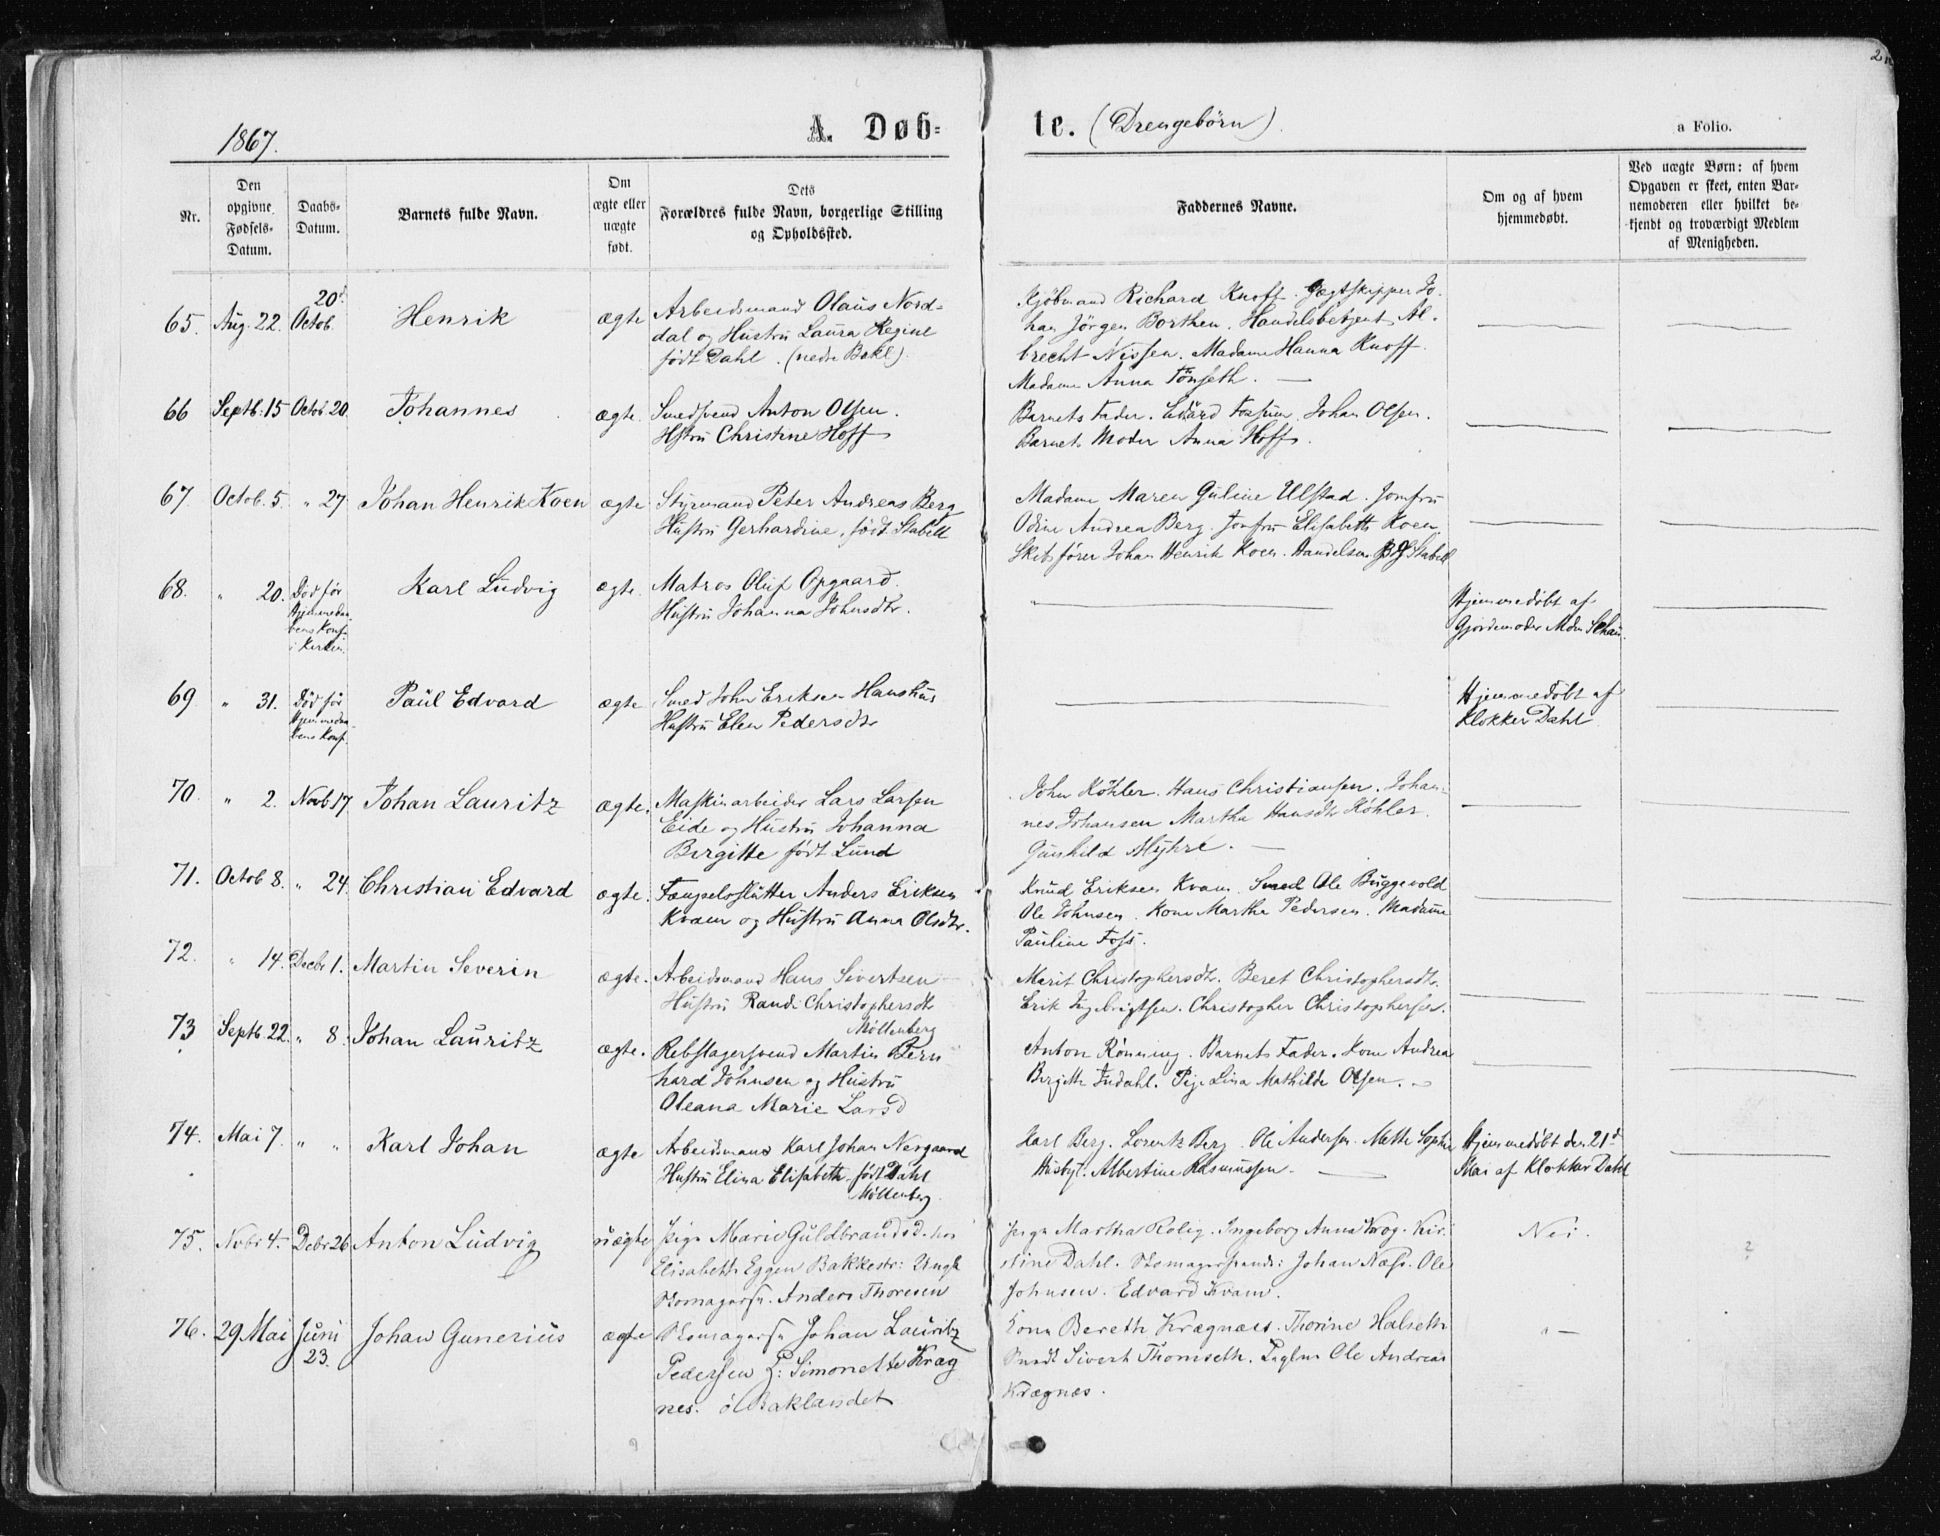 1867.
A. Døb-
te. (Drengebørn)
a Folio.
Nr.
Den opgivne Fødsels-Datum.
Daabs-Datum.
Barnets fulde Navn.
Om ægte eller uægte født.
Dets Forældres fulde Navn, borgerlige Stilling og Opholdssted.
Faddernes Navne.
Om og af hvem hjemmedøbt.
Ved uægte Børn: af hvem Opgaven er skeet, enten Barnemoderen eller hvilket bekjendt og troværdigt Medlem af Menigheden.
65. Aug. 22. 20d Octob. Henrik ægte
Arbeidsmand Olaus Nord-
dal og Hustru Laura Regine
født Dahl. (nedre Bakl.)
Kjøbmand Richard Knoff. Jægtskipper Jo-
han Jörgen Borthen. Handelsbetjent Al-
brecht Nissen. Madame Hanna Knoff.
Madame Anna Tönseth. —
66 Septb. 15 Octob 20. Johannes ægte.
Smedsvend Anton Olsen.
Hstru Christine Hoff
Barnets Fader. Edvard Fossum. Johan Olsen.
Barnets Moder Anna Hoff.
67 Octob. 5. " 27 Johan Henrik Koen ægte
Styrmand Peter Andreas Berg
Hustru Gerhardine, født Stabell
Madame Maren Guline Ulstad. Jomfru
Odine Andrea Berg. Jomfru Elisabeth Koen
Skibsfører Johan Henrik Koen. Handelsm. Stabell
68. " 20. Død før Hjemmedaabens Konf. i Kirken. Karl Ludvig ægte.
Matros Oluf Opgaard.
Hustru Johanna Johnsdtr.
Hjemmedøbt af
Gjordemoder Mdm Schau.
69 " 31. Död før Hjemmedaabens Konf. Paul Edvard ægte
Smed John Eriksen Hanshus
Hustru Elen Pedersdtr
Hjemmedöbt af
Klokker Dahl
70. " 2. Novb 17 Johan Lauritz ægte.
Maskinarbeider Lars Larsen
Eide og Hustru Johanna
Birgitte født Lund
John Köhler. Hans Christiansen. Johan-
nes Johansen Martha Hansdtr Köhler.
Gunhild Myhre. —
71. Octob 8. " 24. Christian Edvard ægte.
Fængselsslutter Anders Eriksen
Kvam og Hustru Anna Olsdtr.
Knud Eriksen Kvam. Smed Ole Buggevold
Ole Johnsen. Kone Martha Pedersen. Madame
Pauline Foss.
72. " 14. Decbr 1. Martin Severin ægte.
Arbeidsmand Hans Sivertsen
Hustru Randi Christophersdtr
Möllenberg
Marit Christophersdtr. Beret Christophersdtr.
Erik Ingebrigtsen. Christopher Christophersen.
73 Septb 22. " 8. Johan Lauritz ægte.
Rebslagersvend Martin Bern
hard Johnsen og Hustru
Oleana Marie Larsd
Anton Rönning. Barnets Fader. Kone Andrea
Birgitte Indahl. Pige Lina Mathilde Olsen. —
74. Mai 7. " " Karl Johan ægte
Arbeidsmand Karl Johan Nergaard
Hustru Elina Elisabeth født Dahl
Möllenberg.
Karl Berg. Lorentz Berg. Ole Andersen. Mette Sophie
Husbye. Albertine Rasmussen. —
Hjemmedøbt den 21d
Mai af Klokker Dahl
75. Nvbr 4. Debr 26 Anton Ludvig uægte
Pige Marie Guldbrandsd. hos
Elisabeth Eggen Bakkestr: Ungk
Skomagersv. Anders Thoresen
Pige Martha Rolig. Ingeborg Anna Krog. Kir-
stine Dahl. Skomagersvende: Johan Næss. Ole
Johnsen. Edvard Kvam.
Nei.
?
76. 29 Mai Juni 23. Johan Gunerius ægte
Skomagersv Johan Lauritz
Pedersen H: Simonette Kræg
nes. ö Baklandet
Kone Bereth Krægnæs. Thorine Halseth
Smedk Sivert Thomseth. Ole Andreas
Krægnæs.
" —